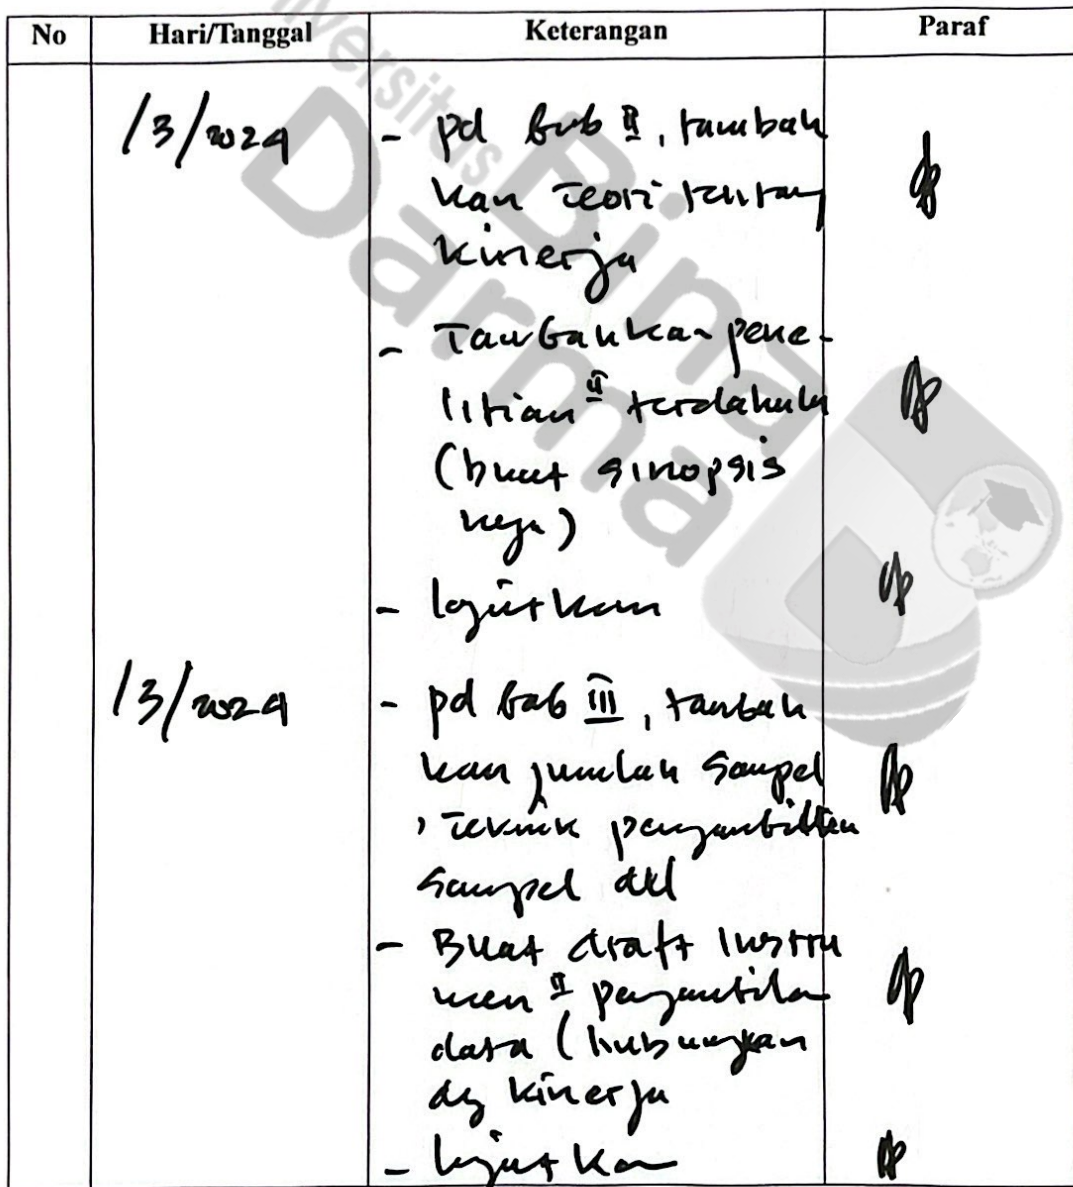 No Hari/Tanggal Keterangan Paraf
Universitas
Bina
Darma
/3/2024 - pd bab II, tambah
kan Teori tentang
kinerja
- Tambahkan pene-
litian II terdahulu
(buat sinopsis
nya)
- lanjutkan
/3/2024 - pd bab III, tambah
kan jumlah sampel
, Teknik pengambilan
sampel dll
- Buat draft Instru
men II pengambilan
data (hubungkan
dg kinerja
- lanjutkan